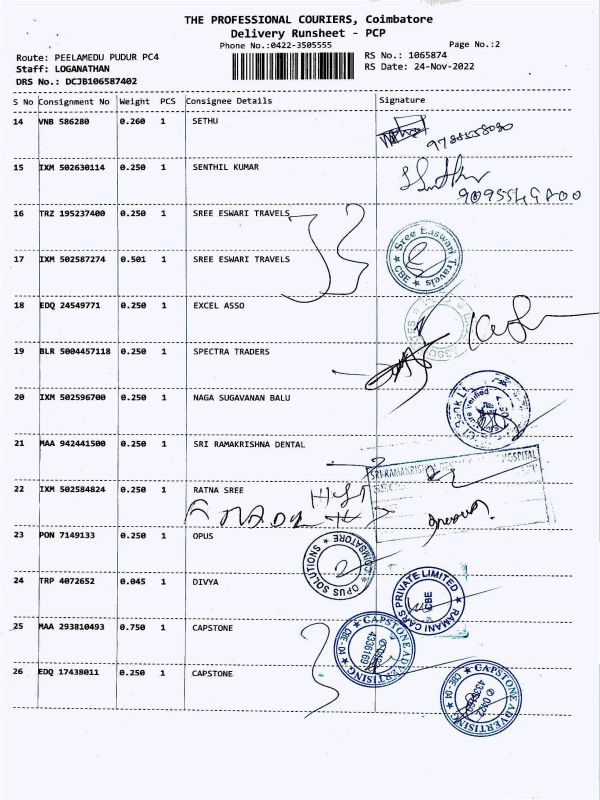 THE PROFESSIONAL COURIERS, Coimbatore
Delivery Runsheet - PCP
Phone No.:0422-3505555
Page No.:2
Route: PEELAMEDU PUDUR PC4
RS No.: 1065874
Staff: LOGANATHAN
RS Date: 24-Nov-2022
DRS No.: DCJB106587402
S No Consignment No Weight PCS Consignee Details Signature
14 VNB 586280 0.260 1 SETHU
15 IXM 502630114 0.250 1 SENTHIL KUMAR
16 TRZ 195237400 0.250 1 SREE ESWARI TRAVELS
17 IXM 502587274 0.501 1 SREE ESWARI TRAVELS
Sree Easwari Travels
CBE
18 EDQ 24549771 0.250 1 EXCEL ASSO
19 BLR 5004457118 0.250 1 SPECTRA TRADERS
20 IXM 502596700 0.250 1 NAGA SUGAVANAN BALU
21 MAA 942441500 0.250 1 SRI RAMAKRISHNA DENTAL
HOSPITAL
22 IXM 502584824 0.250 1 RATNA SREE
23 PON 7149133 0.250 1 OPUS
OPUS SOLUTIONS COIMBATORE
24 TRP 4072652 0.045 1 DIVYA
RAMANI CARS PRIVATE LIMITED
CBE
25 MAA 293810493 0.750 1 CAPSTONE
CAPSTONE ADVERTISING
CBE-04
0422
4336169
26 EDQ 17438011 0.250 1 CAPSTONE
CAPSTONE ADVERTISING
CBE-04
0422